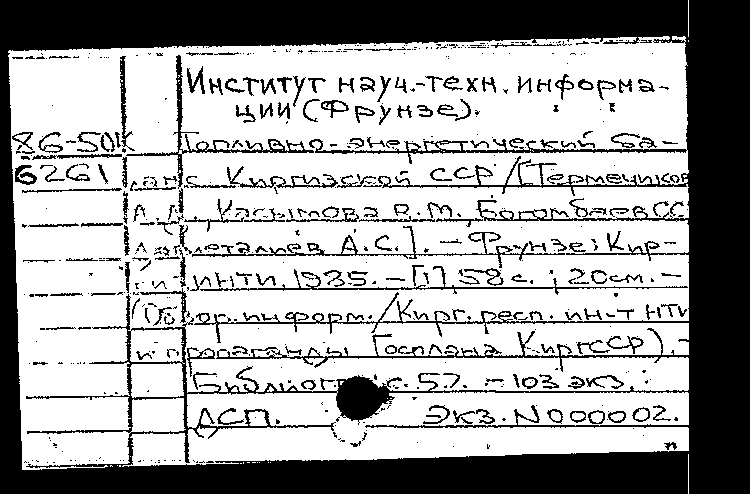 Институт науч.-техн. информа-
ции (Фрунзе).
86-50К Топливно-энергетический ба-
6261 ланс Киргизской ССР / [Термечиков
А.Д., Касымова В.М., Богомбаев СС
Давлеталиев А.С.]. — Фрунзе: Кир-
гизИНТИ, 1985. — [1], 58 с.; 20 см. —
(Обзор. информ. / Кирг. респ. ин-т НТИ
и пропаганды Госплана КиргССР). -
Библиогр.: с. 57. — 103 экз.
ДСП. Экз. N 000002.